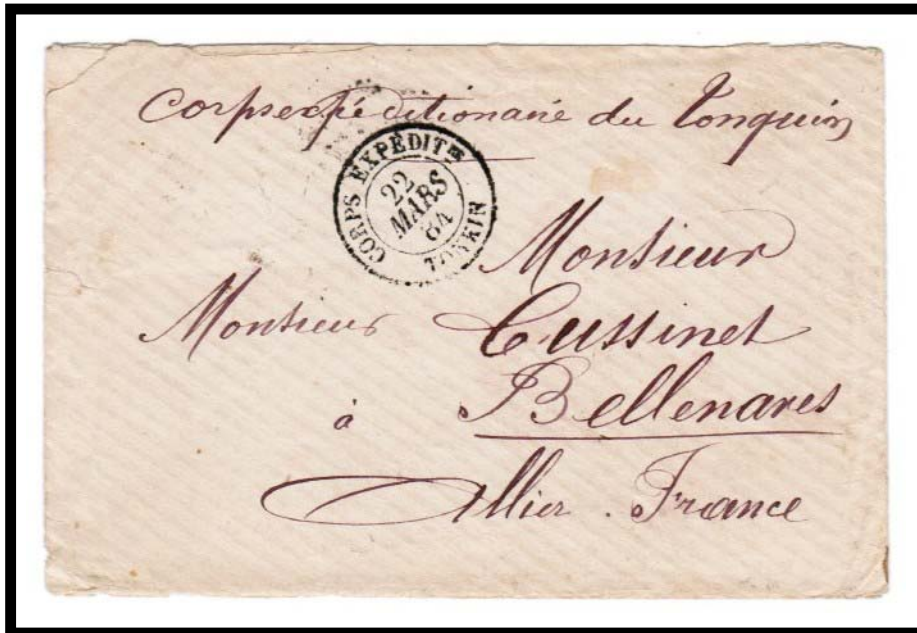 Corps expéditionaire du Tonquin
CORPS EXPÉDIT.RE
22
MARS
84
TONKIN
Monsieur
Monsieur Cussinet
à Bellenaves
Allier. France